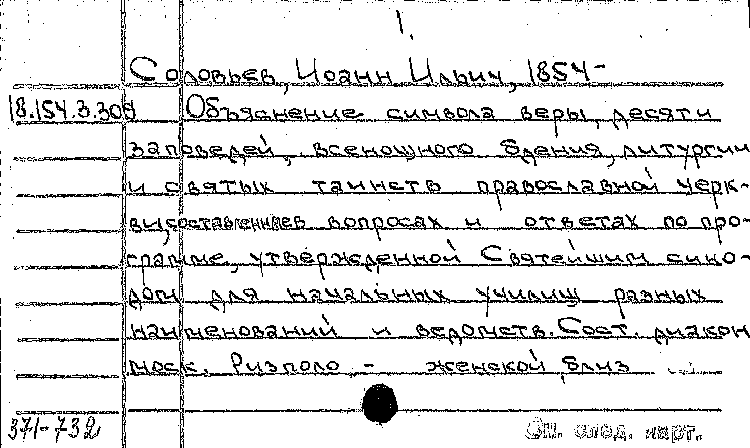 1.
Соловьев, Иоанн Ильич, 1854-
18.154.3.309 Объяснение символа веры, десяти
заповедей, всенощного бдения, литургии
и святых таинств православной черк-
ви, составленное в вопросах и ответах по про-
грамме, утвержденной Святейшим сино-
дом для начальных училищ разных
наименований и ведомств. Сост. диакон
моск. Ризполо, - женской, близ
371-732 См. след. карт.